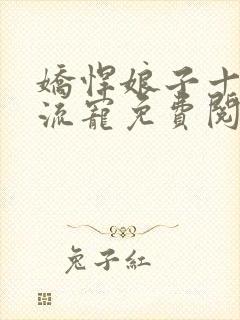 嬌悍娘子十
流寵免費閱
兔子紅